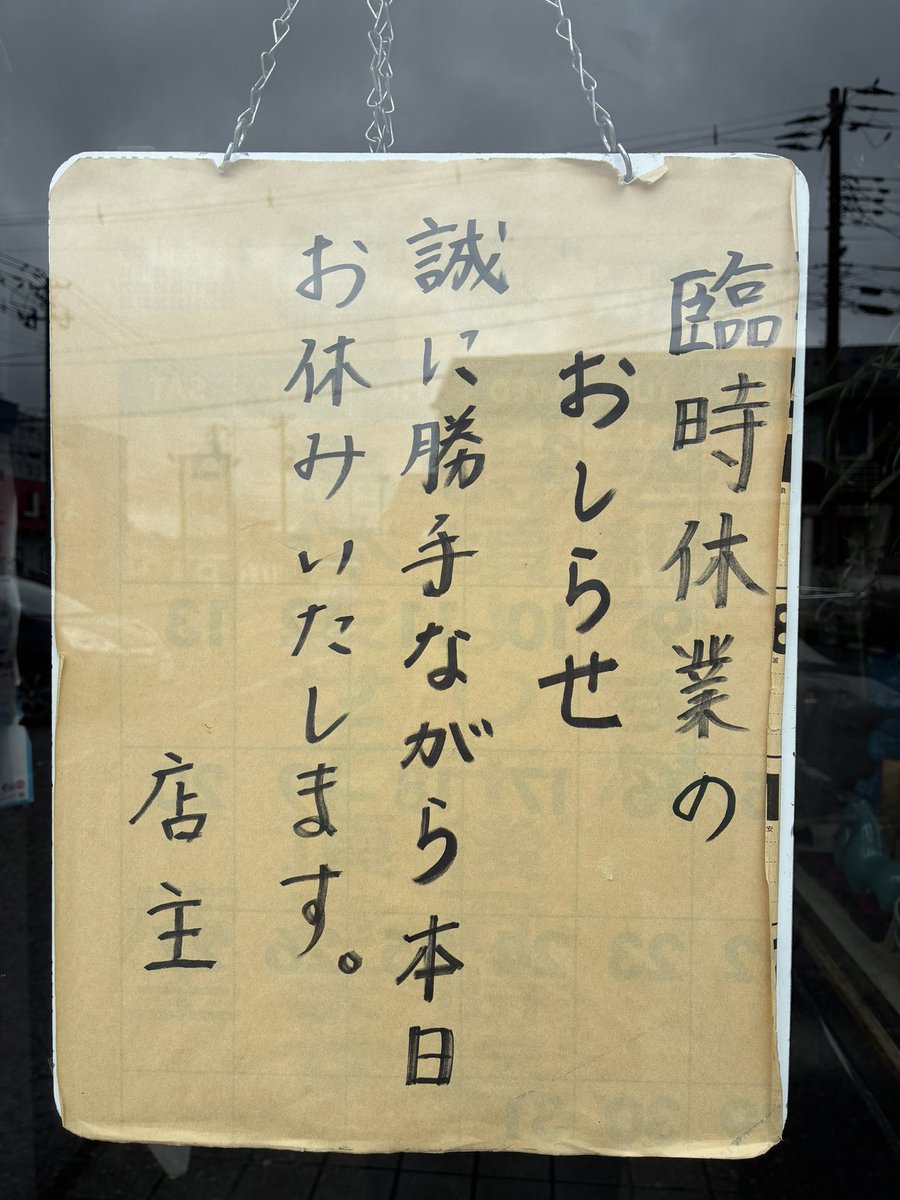 臨時休業の
おしらせ
誠に勝手ながら本日
お休みいたします。
店主